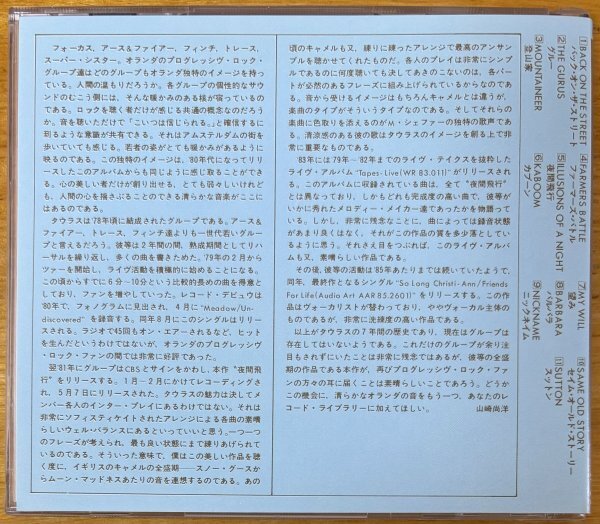 フォーカス、アース&ファイアー、フィンチ、トレース、
スーパー・シスター。オランダのプログレッシヴ・ロック・
グループ達はどのグループもオランダ独特のイメージを持っ
ている。人間の温もりだろうか。各グループの個性的なサウ
ンドのむこう側には、そんな暖かみのある核が宿っているの
である。ロックを聴く者だけが感じる共通の概念なのだろう
か。音を聴いただけで「こいつは信じられる。」と確信するに
到るような意識が共有できる。それはアムステルダムの街を
歩いていても感じる。若者の姿がとても暖かみがあるように
映るのである。この独特のイメージは、'80年代になってリリ
ースしたこのアルバムからも同じように感じ取ることができ
る。心の美しい者だけが創り出せる、とても弱々しいけれど
も、人間の心を揺さぶることのできる清らかな音楽がここに
はあるのである。
タウラスは'78年頃に結成されたグループである。アース&
ファイアー、トレース、フィンチ達よりも一世代若いグルー
プと言えるだろう。彼等は2年間の間、熟成期間としてリハ
ーサルを繰り返し、多くの曲を書きためた。'79年の2月から
ツアーを開始し、ライヴ活動を積極的に始めることになる。
この頃からすでに6分〜10分という比較的長めの曲を得意と
しており、ファンを増やしていった。レコード・デビュウは
'80年で、フォノグラムに見出され、4月に"Meadow/Un-
discovered"を録音する。同年8月にこのシングルはリリー
スされる。ラジオで45回もオン・エアーされるなど、ヒット
を生んだというわけではないが、オランダのプログレッシヴ
・ロック・ファンの間では非常に好評であった。
翌'81年にグループはCBSとサインをかわし、本作"夜間飛
行"をリリースする。1月－2月にかけてレコーディングさ
れ、5月7日にリリースされた。タウラスの魅力は決してメ
ンバー各人のインター・プレイにあるわけではない。それは
非常にソフィスティケイトされたアレンジによる各曲の素晴
らしいウェル・バランスにあるといっていいと思う。一つ一つ
のフレーズが考えられ、最も良い状態にまで練りあげられて
いるのである。そういった意味で、僕はこの美しい作品を聴
く度に、イギリスのキャメルの全盛期——スノー・グースか
らムーン・マッドネスあたりの音を連想するのである。あの
頃のキャメルも又、練りに練ったアレンジで最高のアンサン
ブルを聴かせてくれたものだ。各人のプレイは非常にシンプ
ルであるのに何度聴いても決してあきのこないのは、各パー
トが必然のあるフレーズに組み上げられているからなのであ
る。音から受けるイメージはもちろんキャメルとは違うが、
楽曲のタイプがそういうタイプなのである。そしてそれらの
楽曲に色取りを添えるのがM・シェファーの独特の歌声であ
る。清涼感のある彼の歌はタウラスのイメージを創る上で非
常に重要なものである。
'83年には79年—82年までのライヴ・テイクスを抜粋した
ライヴ・アルバム"Tapes-Live(WR 83.011)"がリリースされ
る。このアルバムに収録されている曲は、全て"夜間飛行"
とは異なっており、しかもどれも完成度の高い曲で、彼等が
いかに秀れたメロディー・メイカー達であったかを物語って
いる。しかし、非常に残念なことに、曲によっては録音状態
があまり良くはなく、それがこの作品の質を多少落としてい
るように思う。それさえ目をつぶれば、このライヴ・アルバ
ムも又、素晴らしい作品である。
その後、彼等の活動は'85年あたりまでは続いていたようで、
同年、最終作となるシングル"So Long Christi-Ann/Friends
For Life(Audio Art AAR 85.2601)"をリリースする。この作品
ではヴォーカリストが替わっており、ややヴォーカル主体の
ものであるが、非常に洗練度の高い作品である。
以上がタウラスの7年間の歴史であり、現在はグループは
存在してはいないようである。これだけのグループが余り注
目もされずにいたことは非常に残念ではあるが、彼等の全盛
期の作品である本作が、再びプログレッシヴ・ロック・ファ
ンの方々の耳に届くことは素晴らしいことであろう。どうか
この機会に、清らかなオランダの音をもう一つ、あなたのレ
コード・ライブラリーに加えてほしい。 山崎尚洋
①BACK ON THE STREET
バック・オン・ザ・ストリート
②THE GURUS
グルー
③MOUNTAINEER
登山家
④FARMERS BATTLE
ファーマーズ・バトル
⑤ILLUSIONS OF A NIGHT
夜間飛行
⑥KABOOM
カブーン
⑦MY WILL
望み
⑧BARBARA
バルバラ
⑨NICKNAME
ニックネイム
⑩SAME OLD STORY
セイム・オールド・ストーリー
⑪SUTTON
スットン